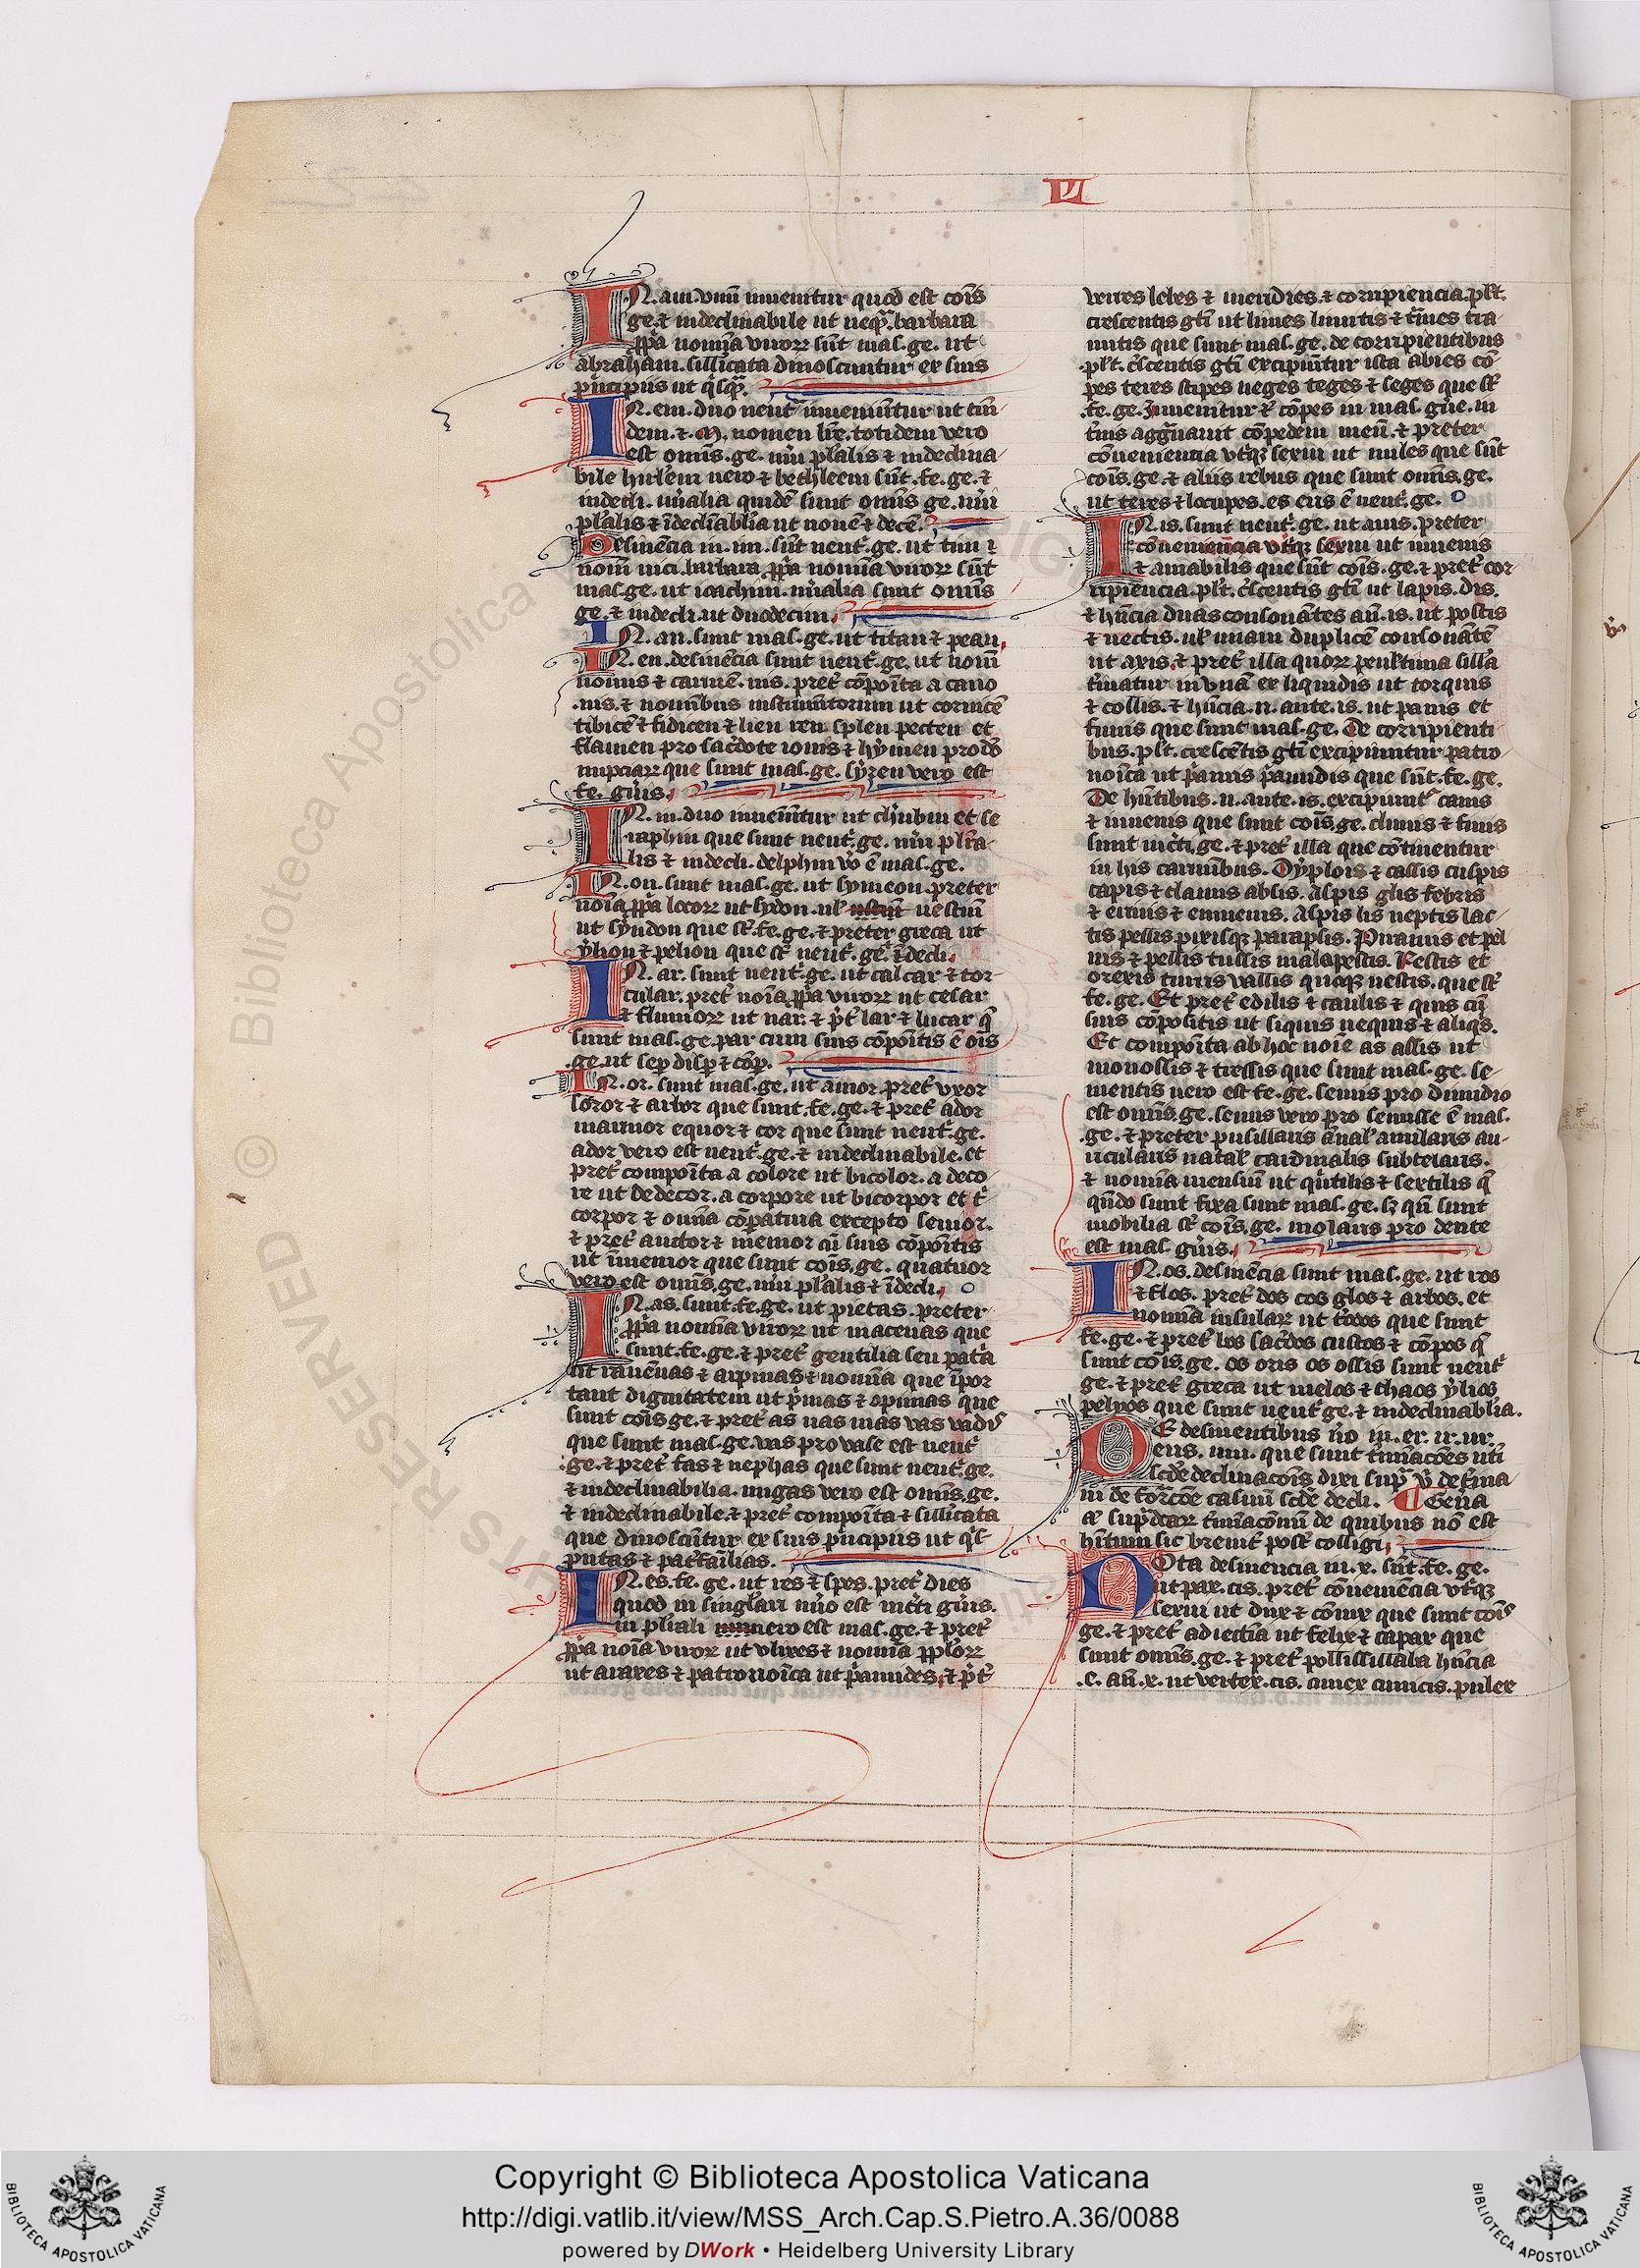 VI
IN. am. vnū inuenitur quod est cōis
ge. ⁊ indeclinabile ut neqͣ. barbara
ꝓpͥa nomīa viroꝝ sūt mas. ge. ut
abraham. sillīcata dinoscuntur ex suis
pͥncipiis ut qͥsqͣ.
IN. em. duo neutͣ inueniūtur ut tan
dem. ⁊. M. nomen lr̄e. totidem vero
est omīs. ge. nūi pl̓alis ⁊ indeclina
bile hir̄lem vero ⁊ bethleem sūt. fe. ge. ⁊
indecli. nūalia quidē sunt omīs ge. nūi
pl̓alis ⁊ īdeclīabl̓ia ut nouē ⁊ decē.
Desinēcia in. im. sūt neut͛. ge. ut
barbara ꝓpͥa nomīa viroꝝ sūt
mas. ge. ut ioachim. nūalia sunt omīs
ge. ⁊ indecli. ut duodecim.
IN. an. sunt mas. ge. ut titan ⁊ pean.
IN. en. desinēcia sunt neut͛. ge. ut nom̄
nomīs ⁊ carmē. nis. pret͛ cōpoīta a cano
.nis. ⁊ nominibus instrumētorum ut cornicē
tibicē ⁊ fidicen ⁊ lien ren splen pecten et
flamen pro sac̄dote iouis ⁊ hymen pro dō
nupciaꝝ que sunt mas. ge. syren vero est
fe. gn̄is.
IN. in. duo inueniūtur ut ch̓ubin et se
raphin que sunt neut͛. ge. nūi pl̓ra
lis ⁊ indecli. delphin vͦo ē mas. ge.
IN. on. sunt mas. ge. ut symeon. preter
noīa ꝓpͥa locoꝝ ut sydon. ul̓ uestiū
ut syndon que sт̄. fe. ge. ⁊ preter greca ut
ylion ⁊ pelion que sт̄ neut͛. ge. ⁊ īdecli.
IN. ar. sunt neut͛. ge. ut calcar ⁊ tor
cular. pret͛ noīa ꝓpͥa viroꝝ ut cesar
⁊ fluuioꝝ ut nar. ⁊ p̄t lar ⁊ lucar q̄
sunt mas. ge. par cum suis cōpoītis ē oīs
.ge. ut sep̱ disp̱ ⁊ cōp̱.
IN. or. sunt mas. ge. ut amor. pret͛ vxor
soror ⁊ arbor que sunt. fe. ge. ⁊ pret͛ ador
marmor equor ⁊ cor que sunt neut͛. ge.
ador vero est neut͛. ge. ⁊ indeclinabile. et
pret͛ compoīta a colore ut bicolor. a deco
re ut dedecor. a corpore ut bicorpor et tͥ
corpor ⁊ omīa cōpatiua excepto senior.
⁊ pret͛ auctor ⁊ memor cū suis cōpoītis
ut īmemor que sunt cōis. ge. quatuor
vero est omīs. ge. nūi pl̓alis ⁊ īdecli.
IN. as. sunt. fe. ge. ut pietas. preter
ꝓpͥa nomīa viroꝝ ut mecenas que
sunt. fe. ge. ⁊ pret͛ gentilia seu patͥa
ut rauēnas ⁊ arpinas ⁊ nomīa que īpor
tant dignitatem ut pͥmas ⁊ opimas que
sunt cōis ge. ⁊ pret͛ as nas mas vas vadis
que sunt mas. ge. vas pro vase est neut͛
.ge. ⁊ pret͛ fas ⁊ nephas que sunt neut͛. ge.
⁊ indeclinabilia. nugas vero est omīs. ge.
⁊ indeclinabile. ⁊ pret͛ compoīta ⁊ sillīcata
que dinoscūtur ex suis pͥncipiis ut qͥs
putas ⁊ pat͛failias.
IN. es. fe. ge. ut res ⁊ spes. pret͛ dies
quod in singl̓ari nūo est inc̄ti gn̄is.
in pl̓iali vero est mas. ge. ⁊ pret͛
ꝓpͥa noīa viroꝝ ut vlixes ⁊ nomīa ppl̓oꝝ
ut araxes ⁊ patronoīca ut pͥamides. ⁊ p̄t͛
verres lebes ⁊ meridies. ⁊ corripiencia. pl̓t.
crescentis gt̄i ut limes limitis ⁊ tͣmes tra
mitis que sunt mas. ge. de corripientibus
.pl̓t. c̓scentis gt̄i excipiūtur ista abies cō
pes teres stipes ueges teges ⁊ seges que sт̄
.fe. ge. Inuenitur ⁊ cōpes in mas. gn̄e. in
t͛nis aggͣuauit cōpedem meū. ⁊ preter
cōueniencia vtͥqꝫ sexui ut miles que sūt
cōis. ge. ⁊ aliis rebus que sunt omīs. ge.
ut teres ⁊ locuples. es eris ē neut͛. ge.
IN. is. sunt neut͛. ge. ut auis. preter
cōueniencia vtͥqꝫ sexui ut iuuenis
⁊ amabilis que sūt cōis. ge. ⁊ pret͛ cor
ripiencia. pl̓t. c̓scentis gt̄i ut lapis. dis.
⁊ hn̄cia duas consonātes an̄. is. ut postis
⁊ vectis. ul̓ unam duplicē consonātē
ut axis. ⁊ pret͛ illa quoꝝ penl̓tima sill̓a
t͛minatur in vnā ex liquidis ut torquis
⁊ collis. ⁊ hn̄cia. n. ante. is. ut panis et
funis que sunt mas. ge. De corripienti
bus. pl̓t. crescētis gt̄i excipiuntur patro
noīca ut pͥamis pͥamidis que sūt. fe. ge.
De hn̄tibus. n. ante. is. excipiunt͛ canis
⁊ iuuenis que sunt cōis. ge. clunis ⁊ finis
sunt inc̄ti. ge. ⁊ pret͛ illa que cōtinentur
in his carminibus. Dyplois ⁊ cassis cuspis
capis ⁊ clamis absis. Aspis glis febris
Aspis lis neptis lac
tis pellis pixisqꝫ parapsis. Piramis et pel
uis ⁊ pellis tussis malapestis. Restis et
orexis turris vallis quoqꝫ uestis. que sт̄
fe. ge. Et pret͛ edilis ⁊ caulis ⁊ quis cū
suis cōpositis ut siquis nequis ⁊ aliqͥs.
Et compoīta ab hoc noīe as assis ut
monossis ⁊ tressis que sunt mas. ge. se
mentis vero est fe. ge. semis pro dimidio
est omīs. ge. semis vero pro semisse ē mas.
.ge. ⁊ preter pusillaris
ricularis natal̓ cardinalis subtelaris.
⁊ nomīa mensiū ut qͥntilis ⁊ sextilis q̄
qn̄do sunt fixa sunt mas. ge. sꝫ qn̄ sunt
mobilia sт̄ cōis. ge. molaris pro dente
est mas. gn̄is.
IN. os. desinēcia sunt mas. ge. ut ros
⁊ flos. pret͛ dos cos glos ⁊ arbos. et
nomīa insulaꝝ ut que sunt
fe. ge. ⁊ pret͛ bos sac̄dos custos ⁊ cōpos q̄
sunt cōis. ge. os oris os ossis sunt neut͛
ge. ⁊ pret͛ greca ut melos ⁊ chaos ylios
que sunt neut͛ ge. ⁊ indeclinabl̓ia.
DE desinentibus ūo in. er. ir. ur.
eus. um. que sunt t͛minacōes nt̄i
scd̄e declinacōis dixi supͣ vͥ det͛mīa
ui de formacōe casuū scd̄e decli. ¶ Gen̄a
aūt supͣdc̄aꝝ t͛minaconū de quibus nō est
hītum sic breuit͛ poss̄t colligi.
NOta desinencia in. x. sūt. fe. ge.
ut pax. cis. pret͛ cōueniēcia vtͥqꝫ
sexui ut dux ⁊ cōiux que sunt cōis
ge. ⁊ pret͛ adiectīa ut felix ⁊ capax que
sunt omīs. ge. ⁊ pret͛ pollissillaba hn̄cia
.e. an̄. x. ut vertex. cis. cimex cimicis. pulex
Copyright © Biblioteca Apostolica Vaticana
http://digi.vatlib.it/view/MSS_Arch.Cap.S.Pietro.A.36/0088
powered by DWork • Heidelberg University Library
BIBLIOTECA APOSTOLICA VATICANA
BIBLIOTECA APOSTOLICA VATICANA